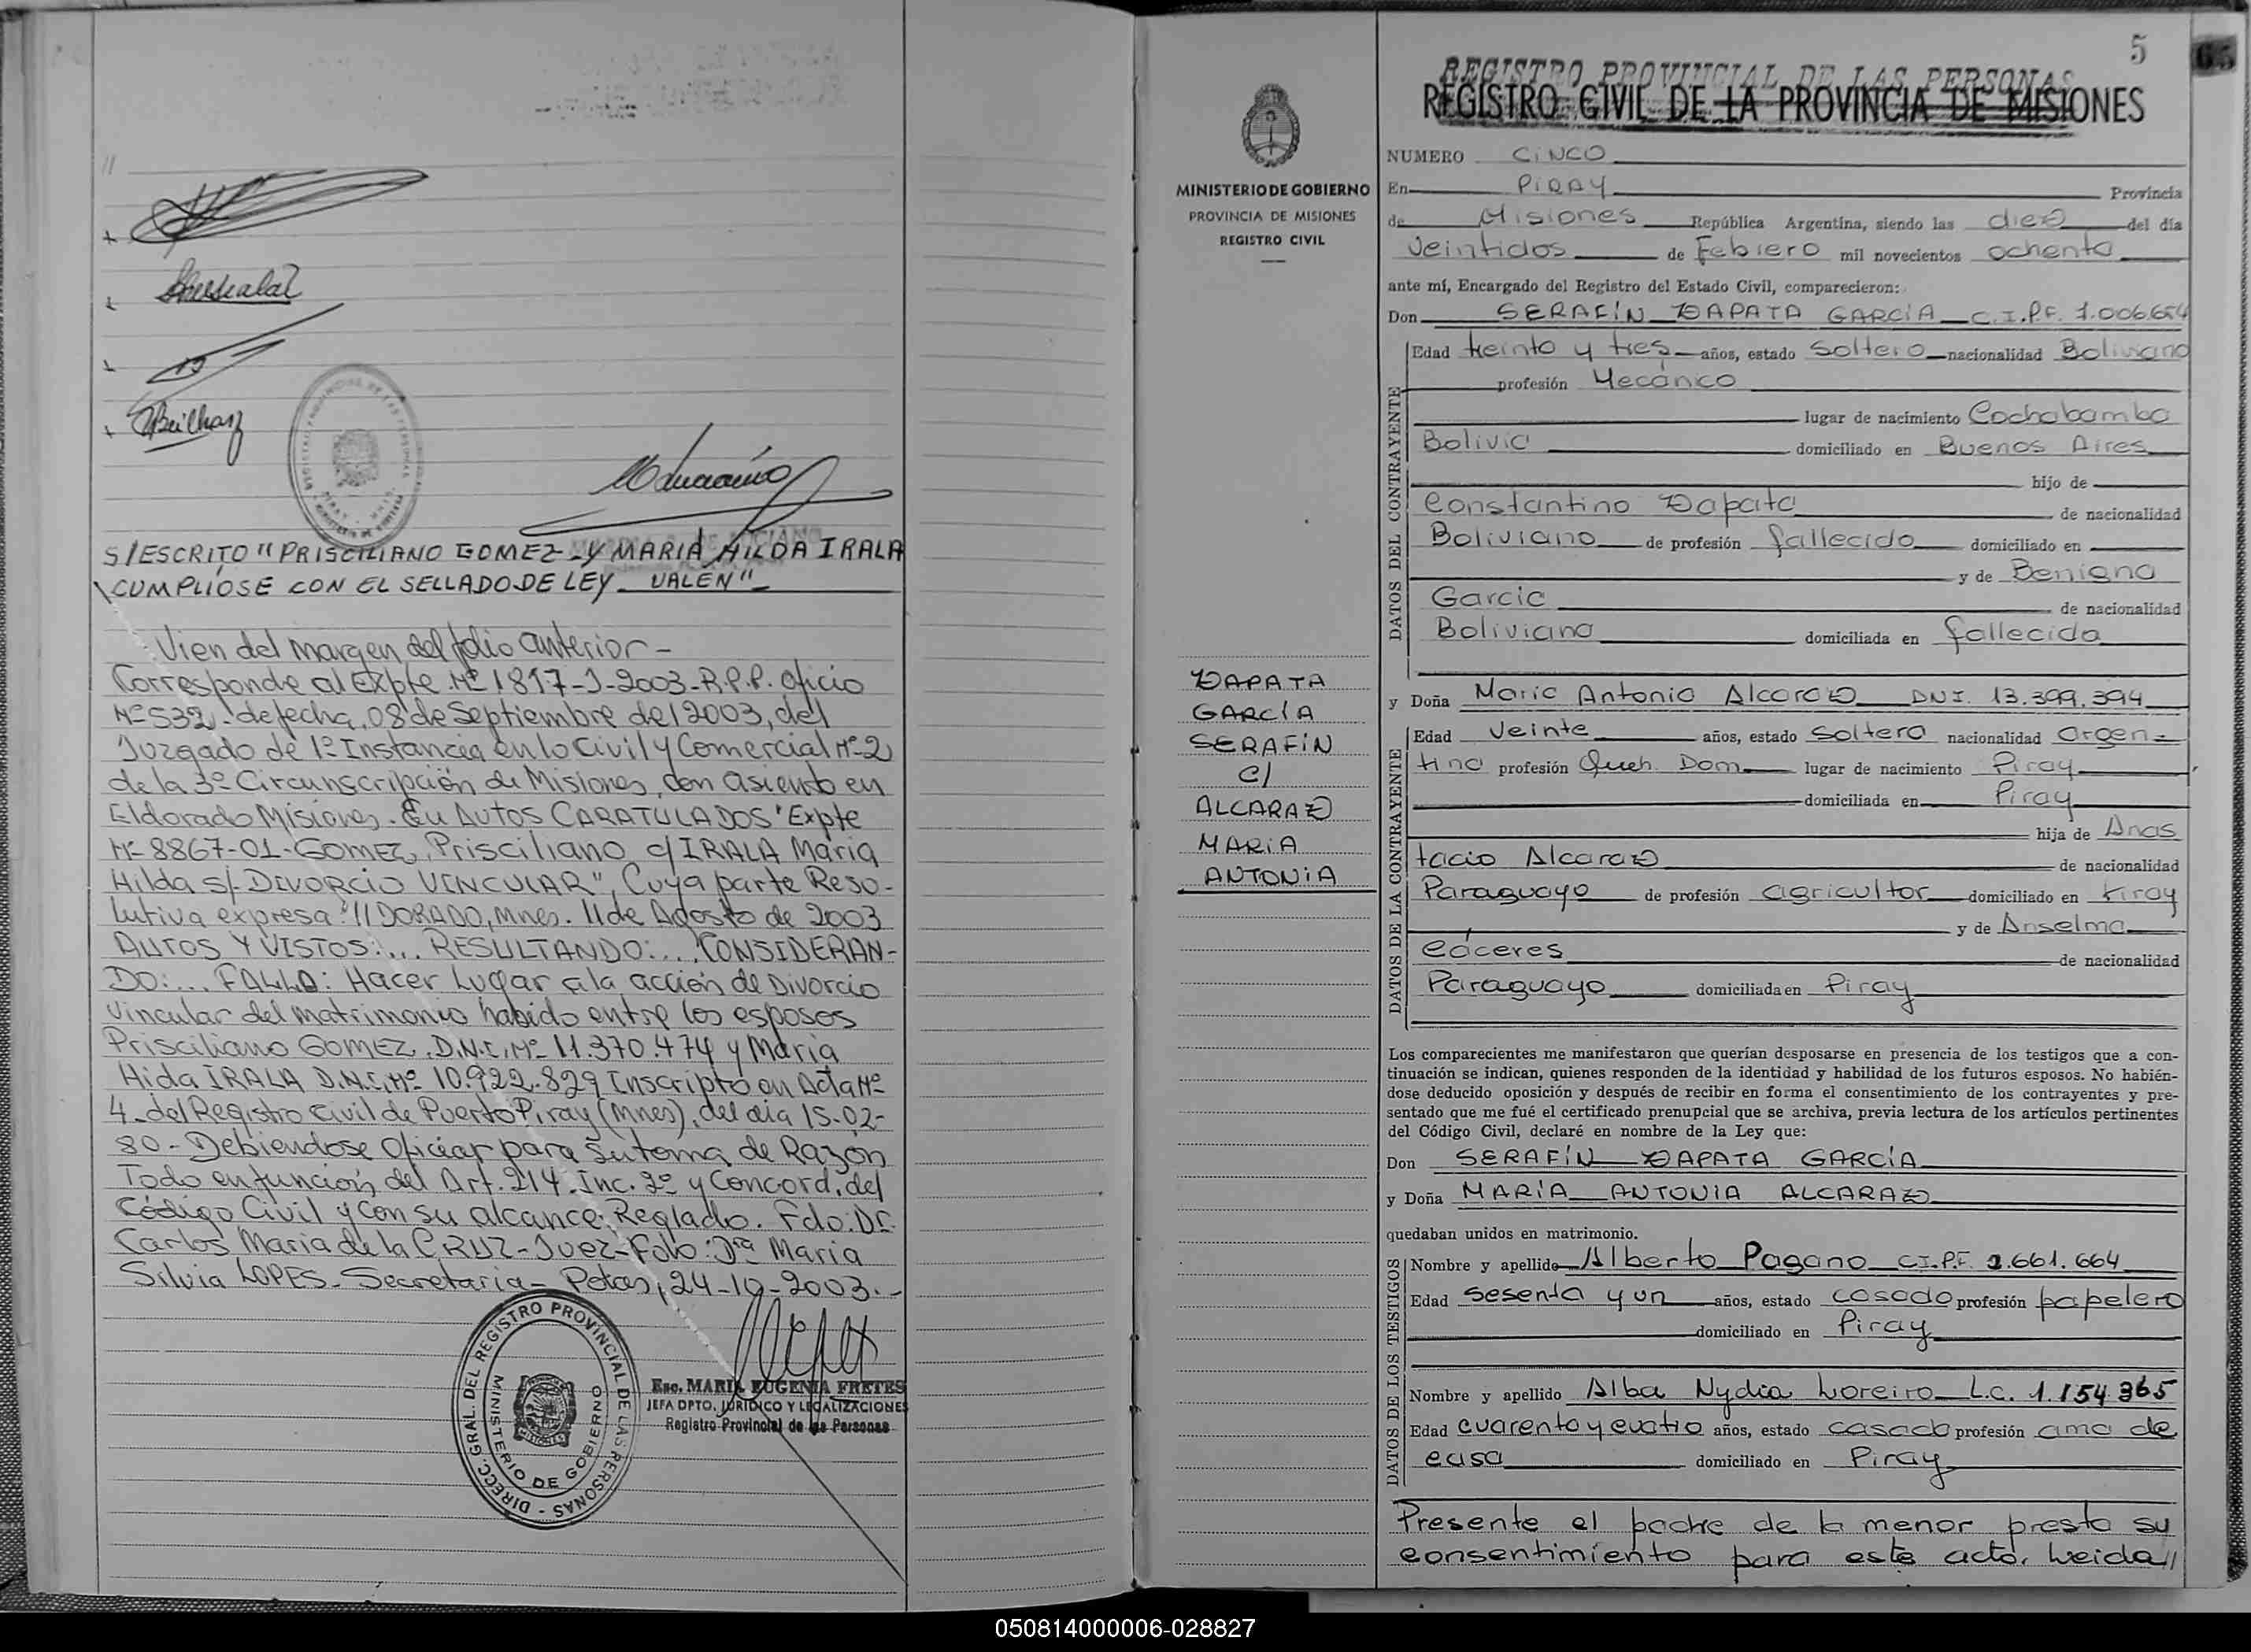 //
S/ESCRITO "PRISCILIANO GOMEZ - Y MARIA HILDA IRALA
CUMPLIOSE CON EL SELLADO DE LEY - VALEN"
Vien del margen del folio anterior -
Corresponde al Expte. Nº 1817-J-2003-R.P.P. oficio
Nº 532 - de fecha, 08 de Septiembre del 2003, del
Juzgado de 1º Instancia en lo Civil y Comercial Nº-2
de la 3º Circunscripción de Misiones, con asiento en
Eldorado Misiones. En AUTOS CARATULADOS "Expte
Nº 8867-01-GOMEZ, Prisciliano c/ IRALA Maria
Hilda S/- DIVORCIO VINCULAR", Cuya parte Reso-
lutiva expresa: "//DORADO, Mnes. 11 de Agosto de 2003
AUTOS Y VISTOS:... RESULTANDO:... CONSIDERAN-
DO:... FALLO: Hacer Lugar a la acción de Divorcio
vincular del matrimonio habido entre los esposos
Prisciliano GOMEZ, D.N.I. Nº 11.370.474 y Maria
Hida IRALA D.N.I. Nº 10.922.829 Inscripto en Acta Nº
4 - del Registro Civil de Puerto Piray (Mnes), del dia 15-02-
80 - Debiendose Oficiar para su toma de Razón
Todo en función del Art. 214 Inc. 2º y Concord. del
Código Civil y con su alcance Reglado. Fdo: Dr.
Carlos Maria de la CRUZ - Juez - Fdo: Dra Maria
Silvia LOPES - Secretaria - Pdas, 24-10-2003.-
DIRECC. GRAL. DEL REGISTRO PROVINCIAL DE LAS PERSONAS -
MINISTERIO DE GOBIERNO
Esc. MARIA EUGENIA FRETES
JEFA DPTO. JURIDICO Y LEGALIZACIONES
Registro Provincial de las Personas
5
65
REGISTRO PROVINCIAL DE LAS PERSONAS
REGISTRO CIVIL DE LA PROVINCIA DE MISIONES
MINISTERIO DE GOBIERNO
PROVINCIA DE MISIONES
REGISTRO CIVIL
ZAPATA
GARCÍA
SERAFÍN
C/
ALCARAZ
MARIA
ANTONIA
NUMERO CINCO
En PIRAY Provincia
de Misiones República Argentina, siendo las diez del día
Veintidos de Febrero mil novecientos ochenta
ante mí, Encargado del Registro del Estado Civil, comparecieron:
Don SERAFÍN ZAPATA GARCÍA C.I.P.F. 1.006.654
DATOS DEL CONTRAYENTE
Edad treinta y tres años, estado Soltero nacionalidad Boliviano
profesión Mecánico
lugar de nacimiento Cochabamba
Bolivia domiciliado en Buenos Aires
hijo de
Constantino Zapata de nacionalidad
Boliviano de profesión fallecido domiciliado en
y de Benigna
Garcia de nacionalidad
Boliviana domiciliada en fallecida
y Doña Maria Antonia Alcaraz DNI. 13.399.394
DATOS DE LA CONTRAYENTE
Edad Veinte años, estado Soltera nacionalidad Argen-
tina profesión Queh. Dom. lugar de nacimiento Piray
domiciliada en Piray
hija de Anas
tacio Alcaraz de nacionalidad
Paraguayo de profesión agricultor domiciliado en Piray
y de Anselma
Cáceres de nacionalidad
Paraguaya domiciliada en Piray
Los comparecientes me manifestaron que querían desposarse en presencia de los testigos que a con-
tinuación se indican, quienes responden de la identidad y habilidad de los futuros esposos. No habién-
dose deducido oposición y después de recibir en forma el consentimiento de los contrayentes y pre-
sentado que me fué el certificado prenupcial que se archiva, previa lectura de los artículos pertinentes
del Código Civil, declaré en nombre de la Ley que:
Don SERAFÍN ZAPATA GARCÍA
y Doña MARÍA ANTONIA ALCARAZ
quedaban unidos en matrimonio.
DATOS DE LOS TESTIGOS
Nombre y apellido Alberto Pagano C.I.P.F. 2.661.664
Edad Sesenta y un años, estado casado profesión papelero
domiciliado en Piray
Nombre y apellido Alba Nydia Loreiro L.C. 1.154.365
Edad cuarenta y cuatro años, estado casada profesión ama de
casa domiciliado en Piray
Presente el padre de la menor presta su
consentimiento para este acto. Leida //
050814000006-028827